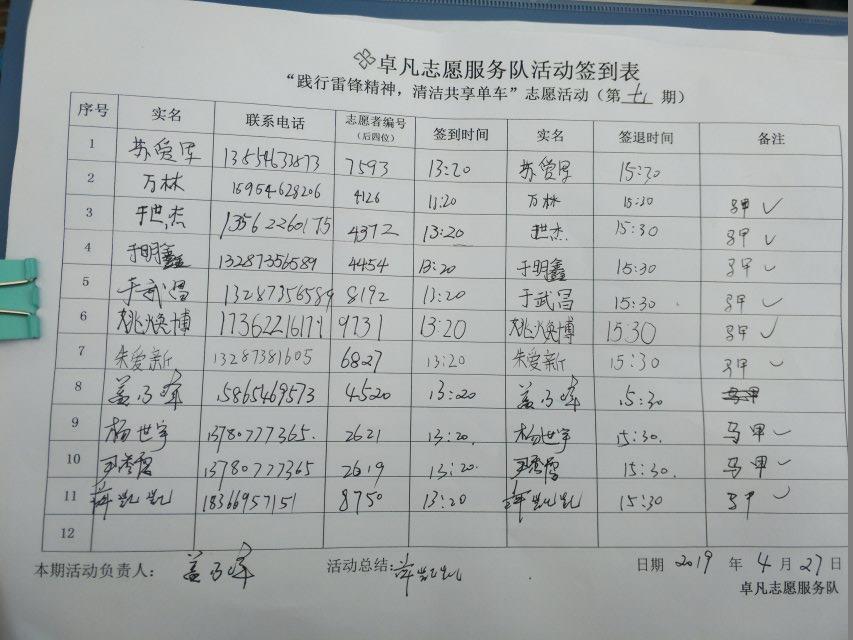 卓凡志愿服务队活动签到表
“践行雷锋精神，清洁共享单车”志愿活动（第 七 期）
序号 实名 联系电话 志愿者编号（后四位） 签到时间 实名 签退时间 备注
1 苏爱军 13554633873 7593 13:20 苏爱军 15:30
2 万林 15954628206 4126 13:20 万林 15:30 马甲 ✓
3 于世杰 13562260175 4372 13:20 世杰 15:30 马甲 ✓
4 于明鑫 13287356589 4454 13:20 于明鑫 15:30 马甲 ✓
5 于武昌 13287356589 8192 13:20 于武昌 15:30 马甲 ✓
6 姚焕博 17362216171 9731 13:20 姚焕博 15:30 马甲 ✓
7 朱爱新 13287381605 6827 13:20 朱爱新 15:30 马甲 ✓
8 盖 15865469573 4520 13:20 盖 15:30 马甲
9 杨世宇 13780777365. 2621 13:20. 杨世宇 15:30. 马甲 ✓
10 13780777365 2619 13:20. 15:30. 马甲 ✓
11 薛凯凯 18366957151 8750 13:20 薛凯凯 15:30 马甲 ✓
12
本期活动负责人： 盖 活动总结: 薛凯凯 日期 2019 年 4 月 27 日
卓凡志愿服务队